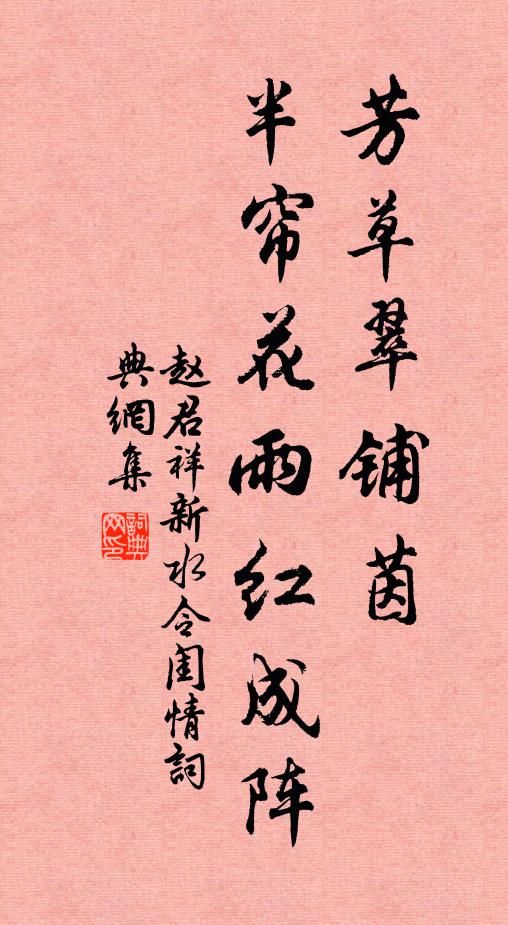 芳草翠铺茵
半帘花雨红成阵
赵君祥新水令闺情词
典網集
詞典
网印